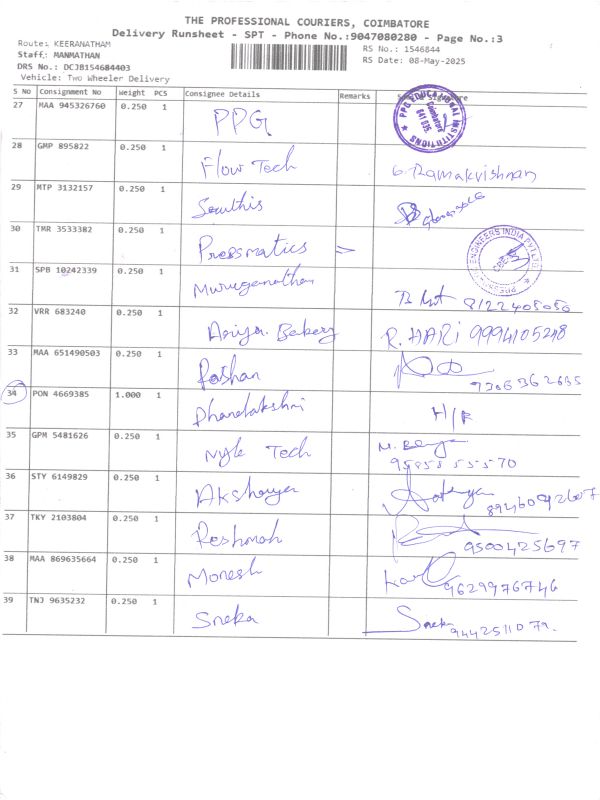 THE PROFESSIONAL COURIERS, COIMBATORE
Delivery Runsheet - SPT - Phone No.:9047080280 - Page No.:3
Route: KEERANATHAM
Staff: MANMATHAN
DRS No.: DCJB154684403
Vehicle: Two Wheeler Delivery
RS No.: 1546844
RS Date: 08-May-2025
S No Consignment No Weight PCS Consignee Details Remarks
27 MAA 945326760 0.250 1 PPG PPG EDUCATIONAL INSTITUTIONS Coimbatore 641 035
28 GMP 895822 0.250 1 Flow Tech G. Ramakrishnan
29 MTP 3132157 0.250 1 Sowthis
30 TMR 3533382 0.250 1 Pressmatics = ENGINEERS INDIA PVT LTD
31 SPB 10242339 0.250 1 Muruganathan 8122405050
32 VRR 683240 0.250 1 Ariya Bakery R. HARI 9994105248
33 MAA 651490503 0.250 1 Roshan
34 PON 4669385 1.000 1 Dhanalakshmi
35 GPM 5481626 0.250 1 Nyle Tech 9585555570
36 STY 6149829 0.250 1 Akshaya
37 TKY 2103804 0.250 1 Reshmah 9500425697
38 MAA 869635664 0.250 1 Monesh 9629976746
39 TNJ 9635232 0.250 1 Sneka Sneka 9442511079.